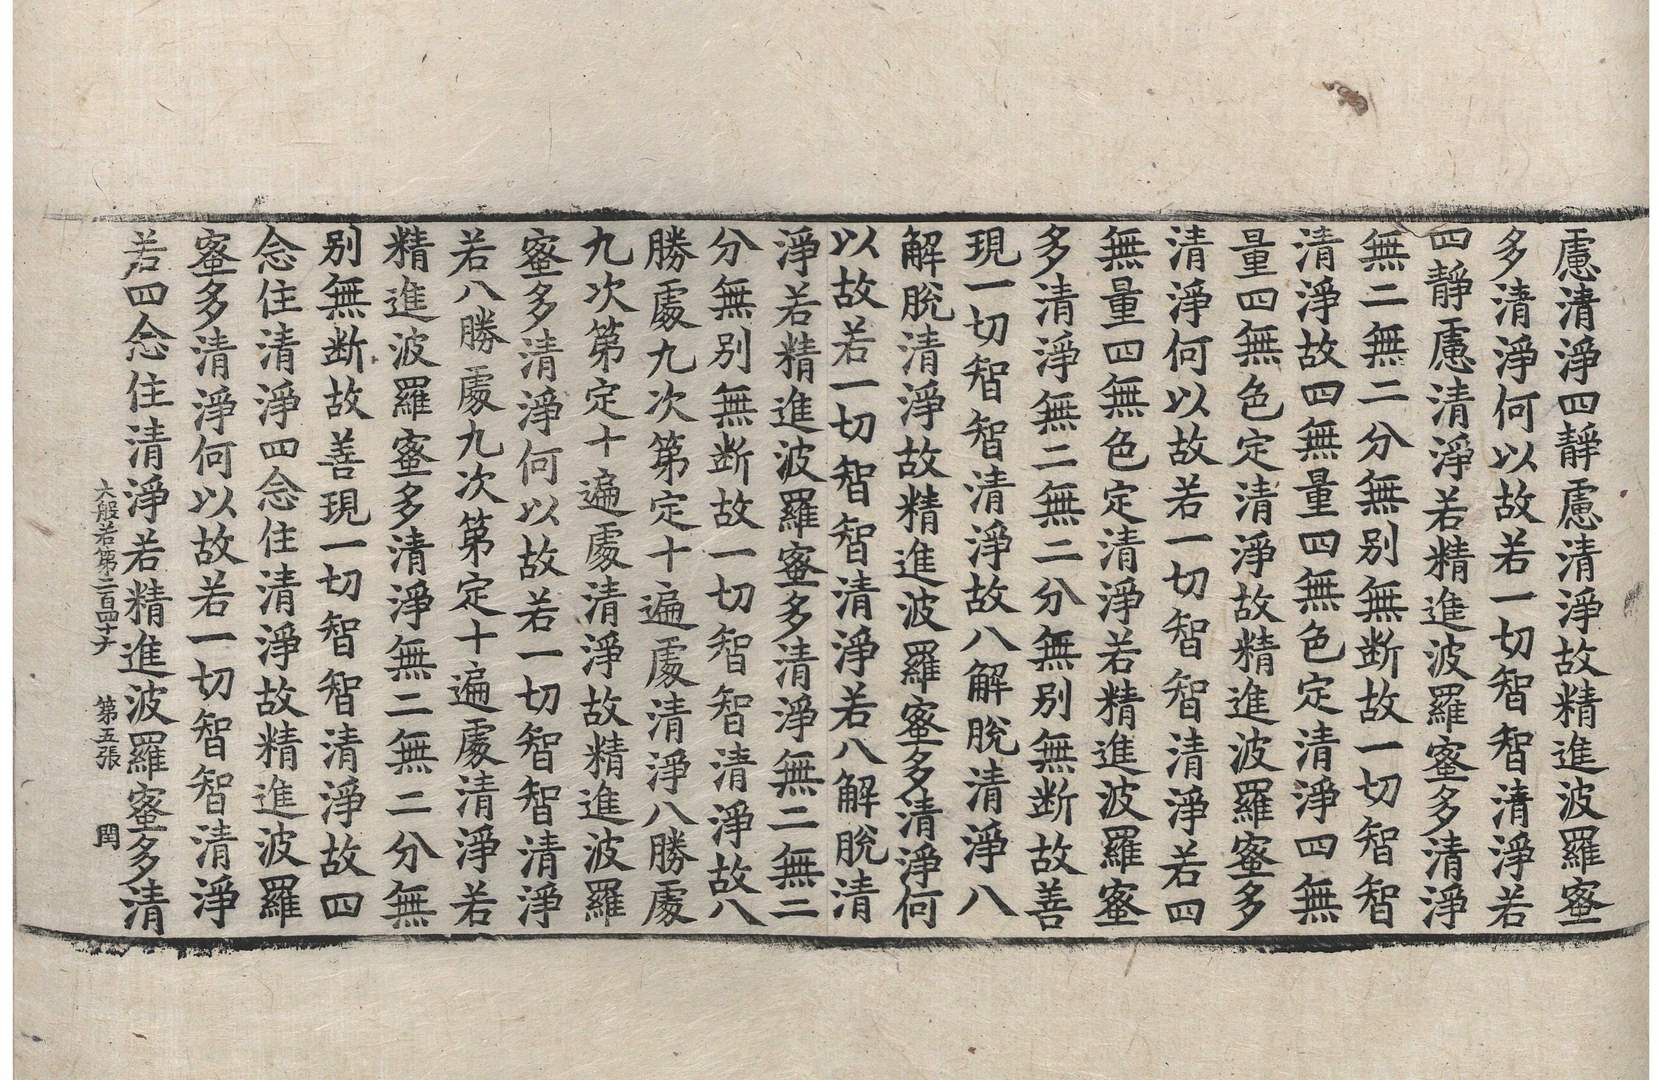 慮清淨四靜慮清淨故精進波羅蜜
多清淨何以故若一切智智清淨若
四靜慮清淨若精進波羅蜜多清淨
無二無二分無別無断故一切智智
清淨故四無量四無色定清淨四無
量四無色定清淨故精進波羅蜜多
清淨何以故若一切智智清淨若四
無量四無色定清淨若精進波羅蜜
多清淨無二無二分無別無断故善
現一切智智清淨故八解脫清淨八
解脫清淨故精進波羅蜜多清淨何
以故若一切智智清淨若八解脫清
淨若精進波羅蜜多清淨無二無二
分無別無断故一切智智清淨故八
勝處九次第定十遍處清淨八勝處
九次第定十遍處清淨故精進波羅
蜜多清淨何以故若一切智智清淨
若八勝處九次第定十遍處清淨若
精進波羅蜜多清淨無二無二分無
別無断故善現一切智智清淨故四
念住清淨四念住清淨故精進波羅
蜜多清淨何以故若一切智智清淨
若四念住清淨若精進波羅蜜多清
大般若第二百四十六 第五張 閏